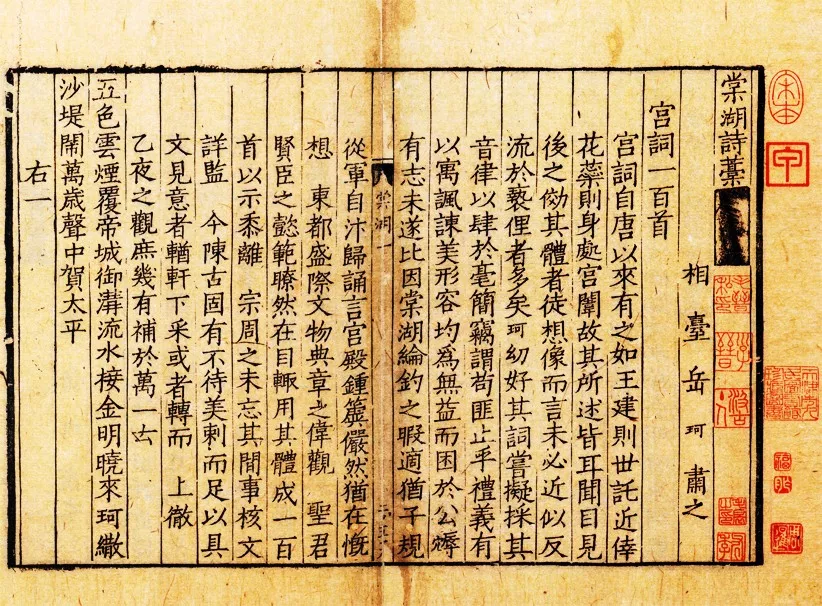 棠湖詩藁
相臺岳珂肅之
宮詞一百首
宮詞自唐以來有之如王建則世託近倖
花蘂則身處宮闈故其所述皆耳聞目見
後之効其體者徒想像而言未必近似反
流於褻俚者多矣珂幼好其詞嘗擬採其
音律以肆於毫簡竊謂苟匪止乎禮義有
以寓諷諫美形容均為無益而困於公㯻
有志未遂比因棠湖綸釣之暇適猶子規
從軍自汴歸誦言宮殿鍾簴儼然猶在慨
想 東都盛際文物典章之偉觀 聖君
賢臣之懿範瞭然在目輒用其體成一百
首以示黍離 宗周之未忘其間事核文
詳監 今陳古固有不待美刺而足以具
文見意者輶軒下采或者轉而 上徹
乙夜之觀庶幾有補於萬一云
五色雲煙覆帝城御溝流水接金明曉來珂繖
沙堤閙萬歲聲中賀太平
右一
棠湖一